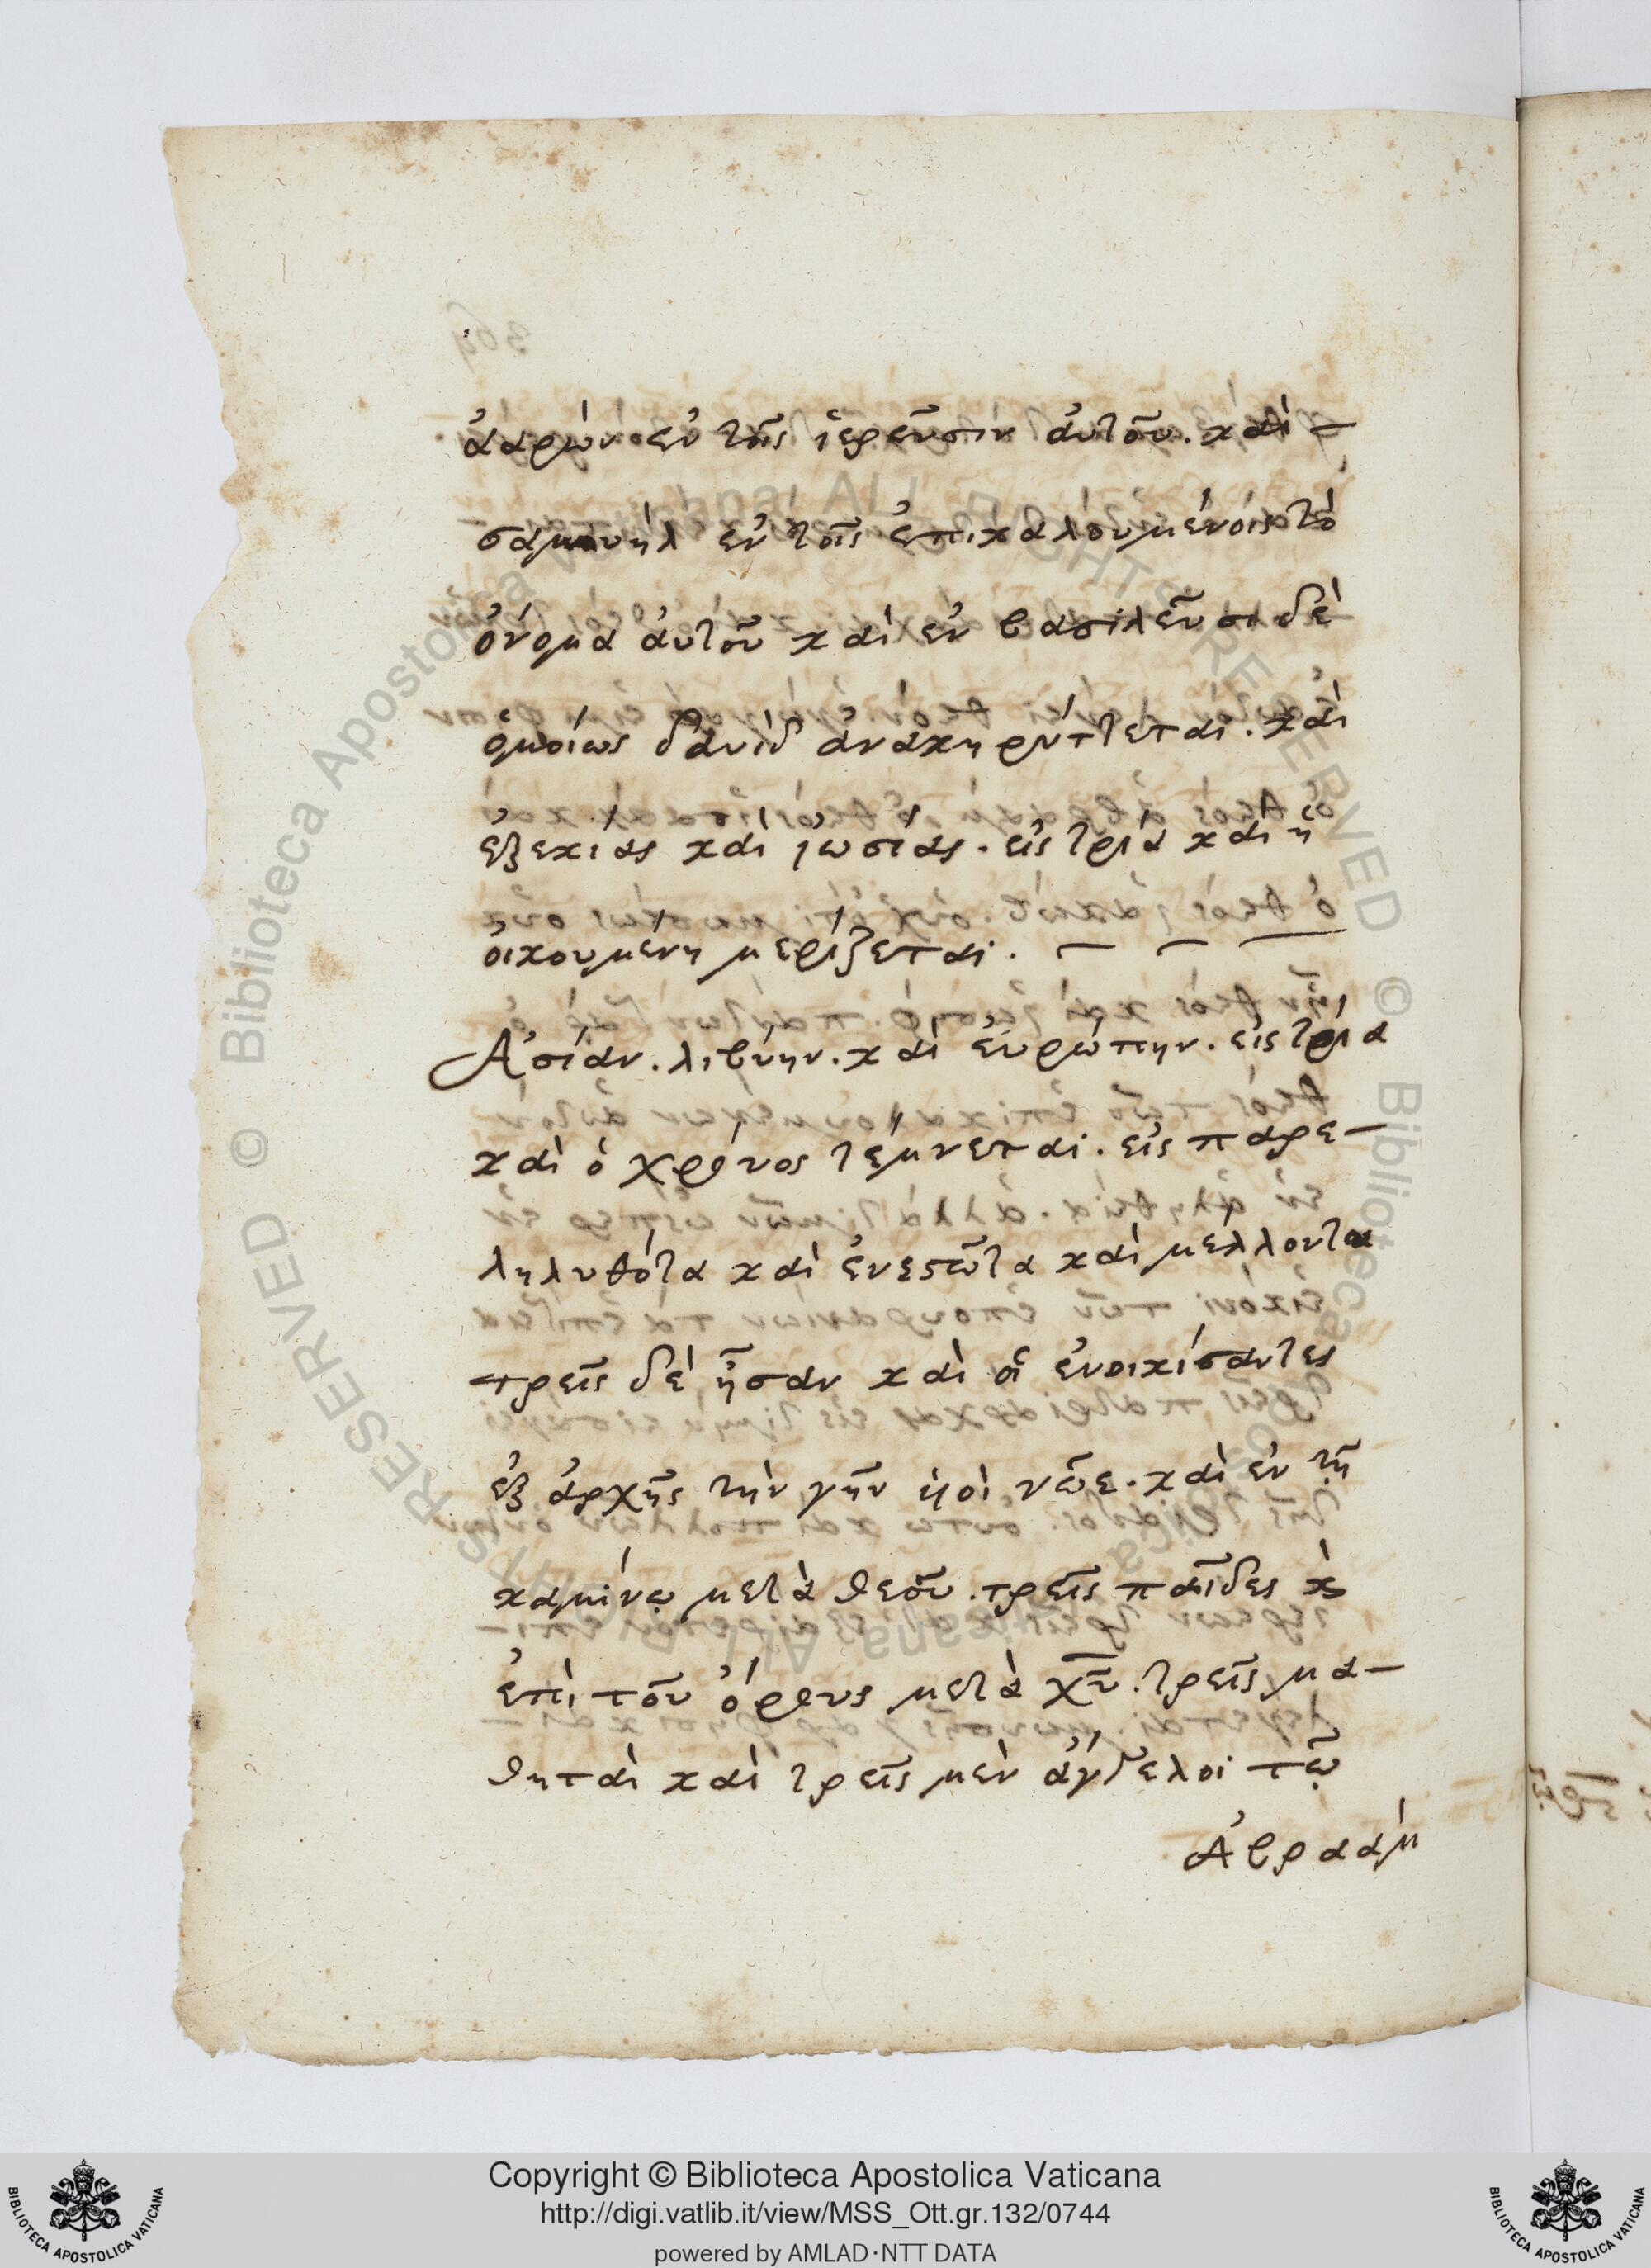 ἀαρὼν ἐν τοῖς ἱερεῦσιν ἀυτοῦ. καὶ –
σαμουὴλ ἐν τοῖς ἐπικαλουμένοις τὸ
ὀνόμα ἀυτοῦ καὶ ἐν βασιλεῦσι δὲ
ὁμοίως δαυὶδ ἀνακηρύττεται. καὶ
ἐξεκίας καὶ ἰωσίας. εἰς τρία καὶ ἡ
ὀικουμένη μερίζεται. – – –
Ἀσίαν. λιβύην. καὶ ἐυρώπην. εἰς τρία
καὶ ὁ χρόνος τέμνεται. εἰς παρε–
ληλυθότα καὶ ἐνεστῶτα καὶ μέλλοντα
τρεῖς δὲ ἦσαν καὶ οἱ ἐνοικίσαντες
ἐξ ἀρχῆς τὴν γῆν ὑιοὶ νῶε. καὶ ἐν τῇ
καμίνῳ μετὰ θεοῦ. τρεῖς παῖδες κὶ
ἐπὶ τοῦ ὄρους μετὰ χῦ. τρεῖς μα–
θηταὶ καὶ τρεῖς μὲν ἄγγελοι τῷ
Ἀβραὰμ
Copyright © Biblioteca Apostolica Vaticana
http://digi.vatlib.it/view/MSS_Ott.gr.132/0744
powered by AMLAD·NTT DATA
BIBLIOTECA APOSTOLICA VATICANA
BIBLIOTECA APOSTOLICA VATICANA